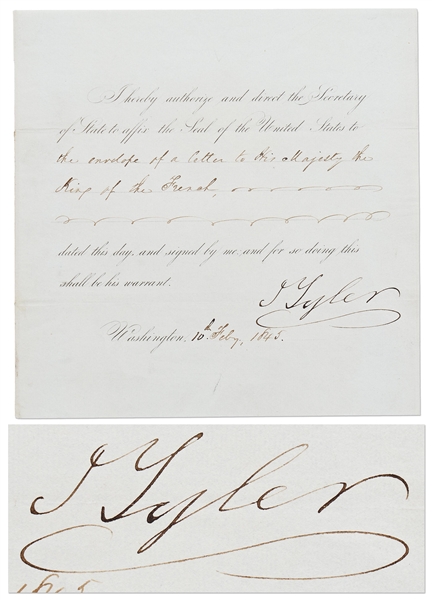 I hereby authorize and direct the Secretary
of State to affix the Seal of the United States to
the envelope of a letter to His Majesty the
King of the French,
dated this day, and signed by me, and for so doing this
shall be his warrant.
J Tyler
Washington, 10th Feby, 1845.
J Tyler
1845